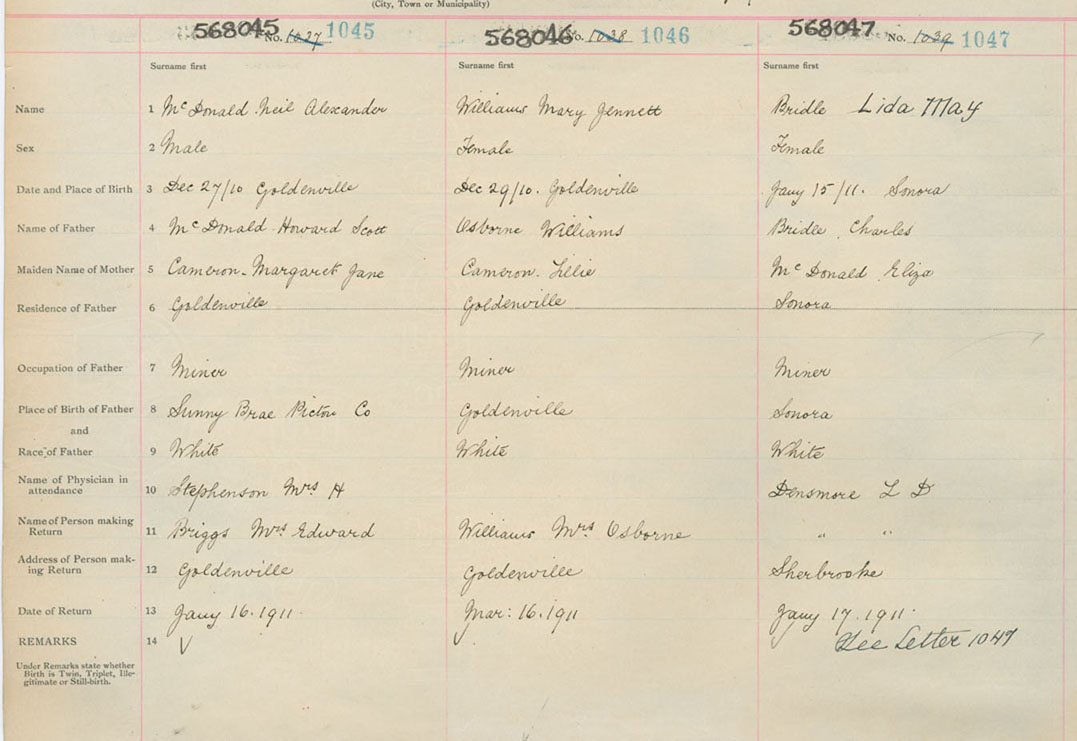 (City, Town or Municipality)
568045 No. 1037 1045 568046 No. 1038 1046 568047 No. 1039 1047
Surname first Surname first Surname first
Name 1 McDonald Neil Alexander Williams Mary Jennett Bridle Lida May
Sex 2 Male Female Female
Date and Place of Birth 3 Dec 27/10 Goldenville Dec 29/10. Goldenville Jany 15/11. Sonora
Name of Father 4 McDonald Howard Scott Osborne Williams Bridle Charles
Maiden Name of Mother 5 Cameron. Margaret Jane Cameron. Lillie McDonald Eliza
Residence of Father 6 Goldenville Goldenville Sonora
Occupation of Father 7 Miner Miner Miner
Place of Birth of Father 8 Sunny Brae Pictou Co Goldenville Sonora
and
Race of Father 9 White White White
Name of Physician in
attendance 10 Stephenson Mrs H Densmore L D
Name of Person making
Return 11 Briggs Mrs Edward Williams Mrs Osborne " "
Address of Person mak-
ing Return 12 Goldenville Goldenville Sherbrooke
Date of Return 13 Jany 16. 1911. Mar: 16. 1911 Jany 17. 1911.
REMARKS 14 See Letter 1047
Under Remarks state whether
Birth is Twin, Triplet, Ille-
gitimate or Still-birth.